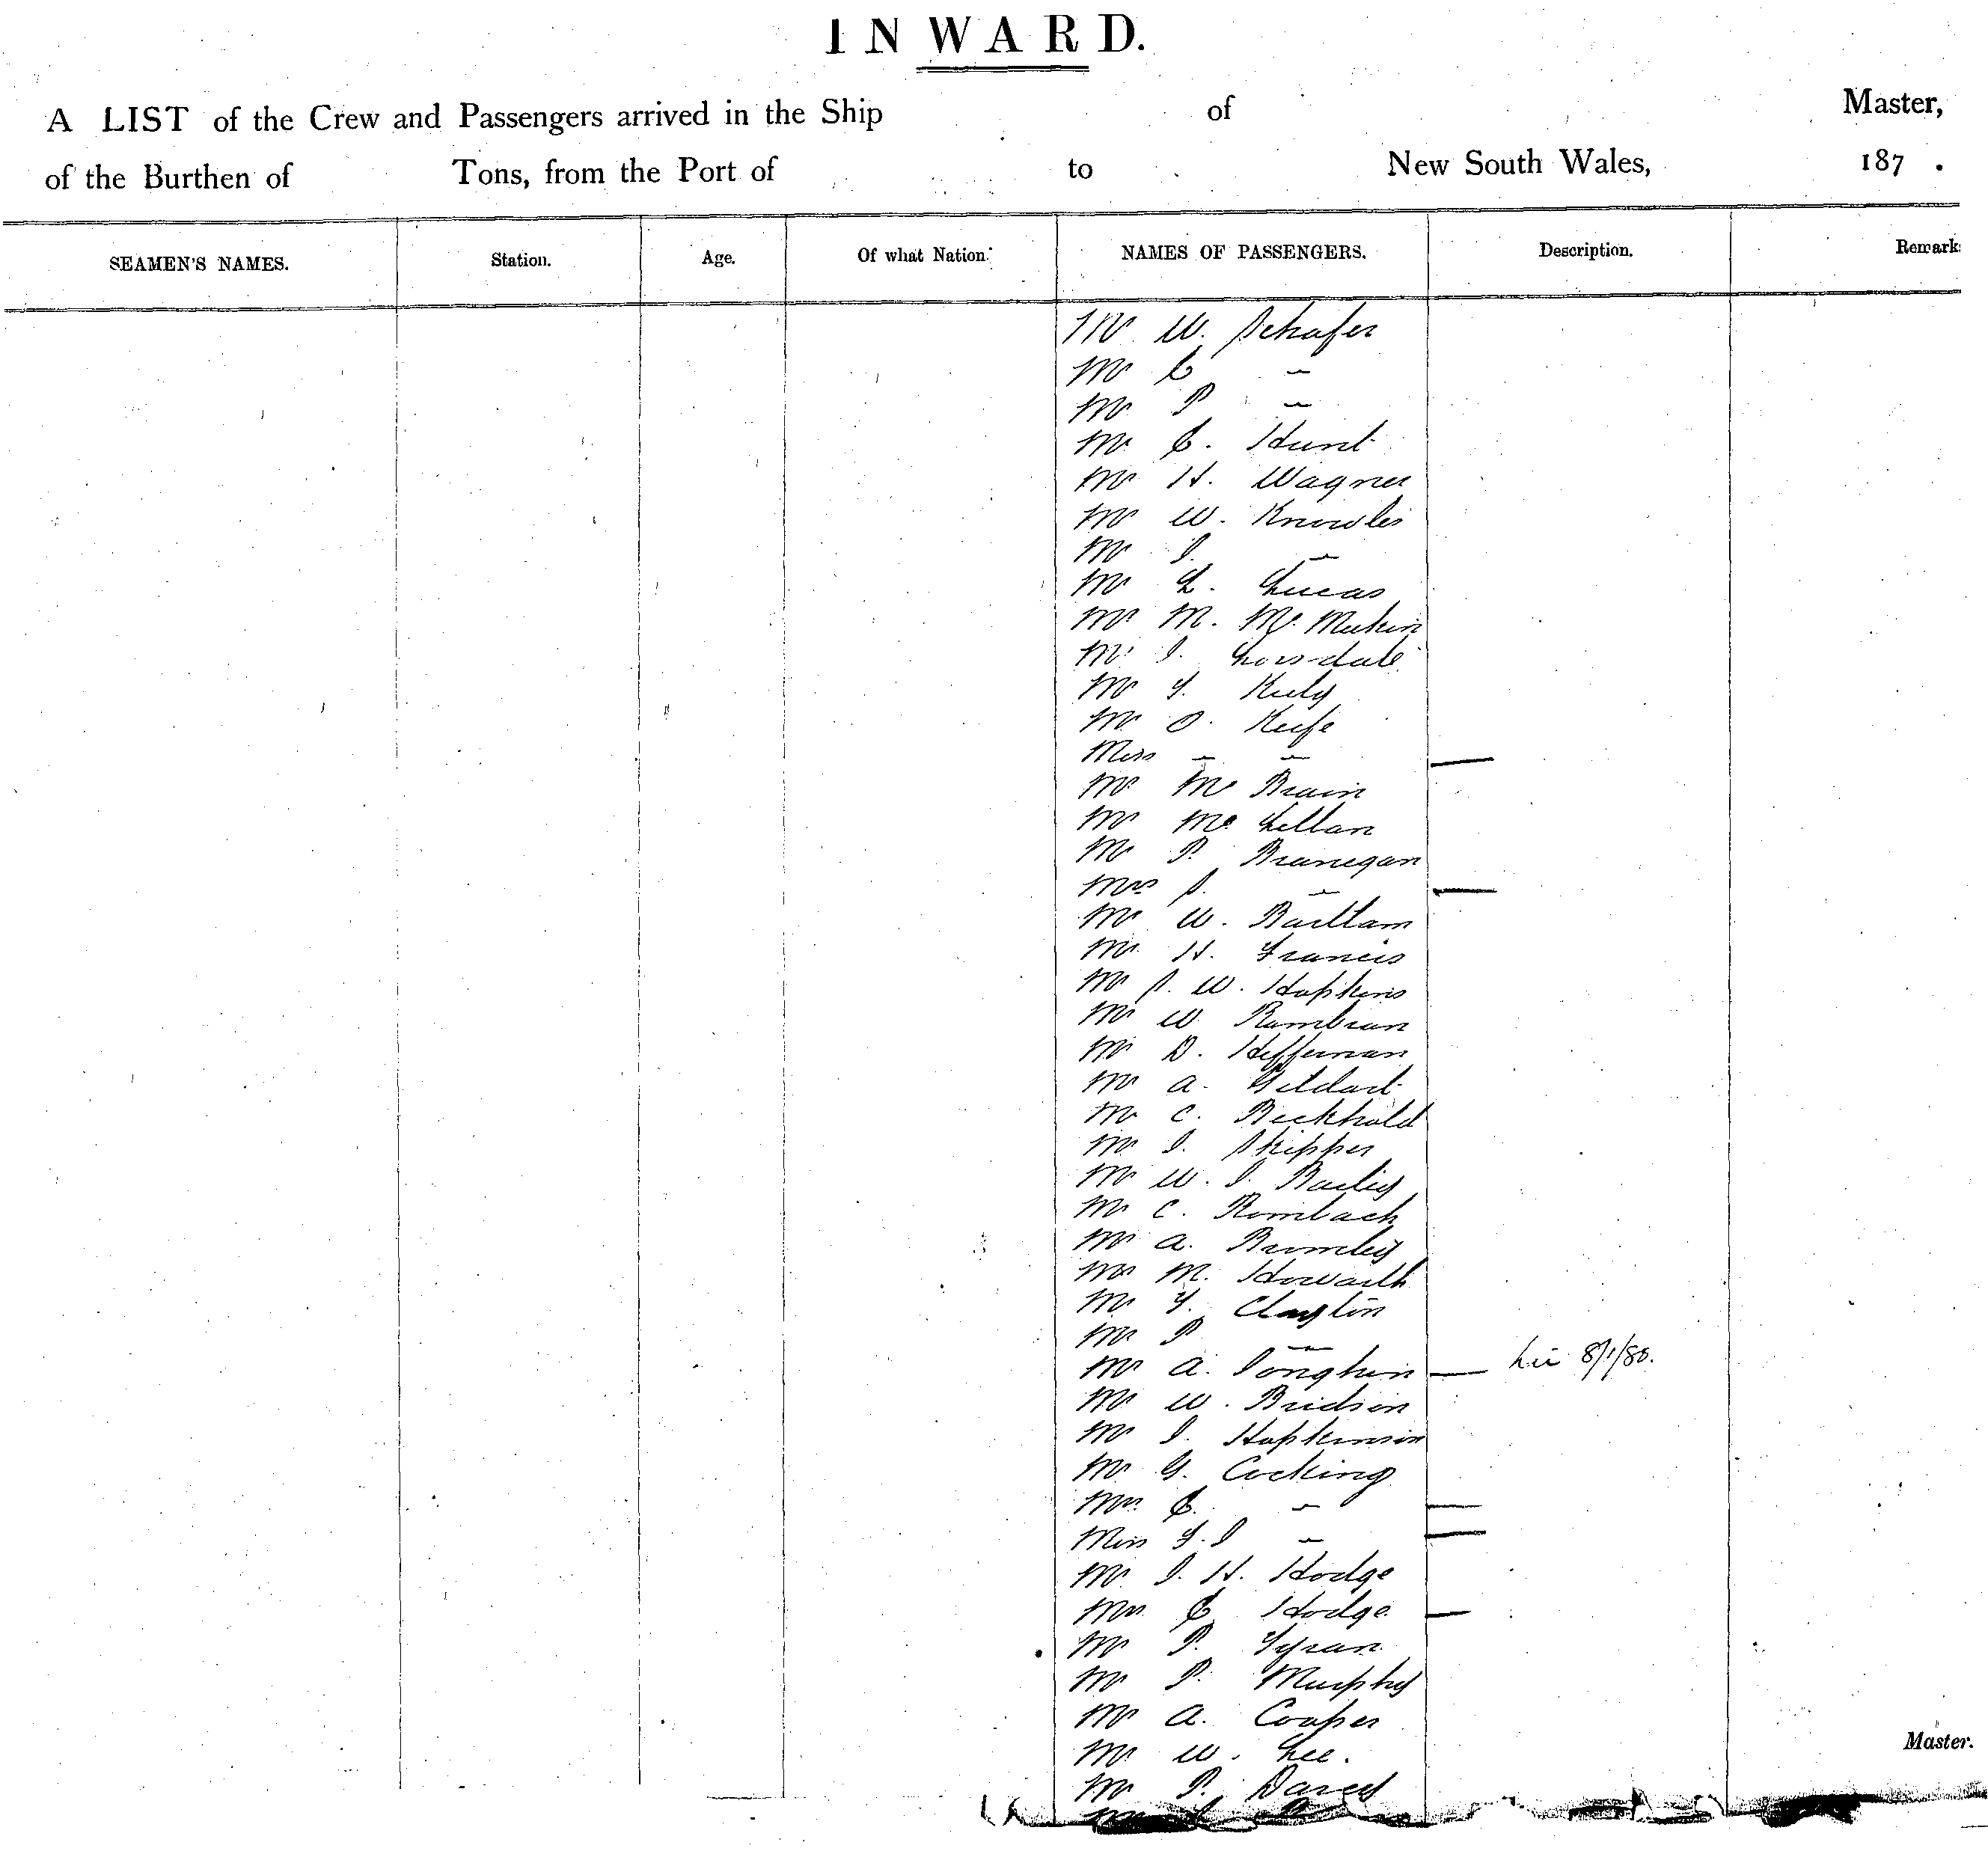 INWARD.
A LIST of the Crew and Passengers arrived in the Ship of Master,
of the Burthen of Tons, from the Port of to New South Wales, 187 .
SEAMEN'S NAMES. Station. Age. Of what Nation. NAMES OF PASSENGERS. Description. Remark
Mr W. Schafer
Mr C —
Mr P —
Mr C. Hunt
Mr H. Wagner
Mr W. Knowles
Mr J. —
Mr L. Lucas
Mr M. Mc Meekin
Mr J. Lonsdale
Mr F. Keely
Mr O. Keefe
Miss — —
Mr Mc Brain
Mr Mc Lellan
Mr P. Branegan
Mrs S. —
Mr W. Bartlam
Mr H. Francis
Mr S. W. Hopkins
Mr W.
Mr D. Heffernan
Mr A. Geldart
Mr C. Beckhold
Mr J. Skipper
Mr W. J. Bailey
Mr C. Rombach
Mr A. Bromley
Mrs M. Howarth
Mr F. Clayton
Mr P —
Mr A. — 8/1/80.
Mr W. Bridson
Mr J. Hopkinson
Mr G. Cocking
Mrs E. —
Miss F. J —
Mr J. H. Hodge
Mrs E. Hodge
Mr P.
Mr P. Murphy
Mr A. Cooper
Mr W. Lee.
Mr P. Darcey
Master.